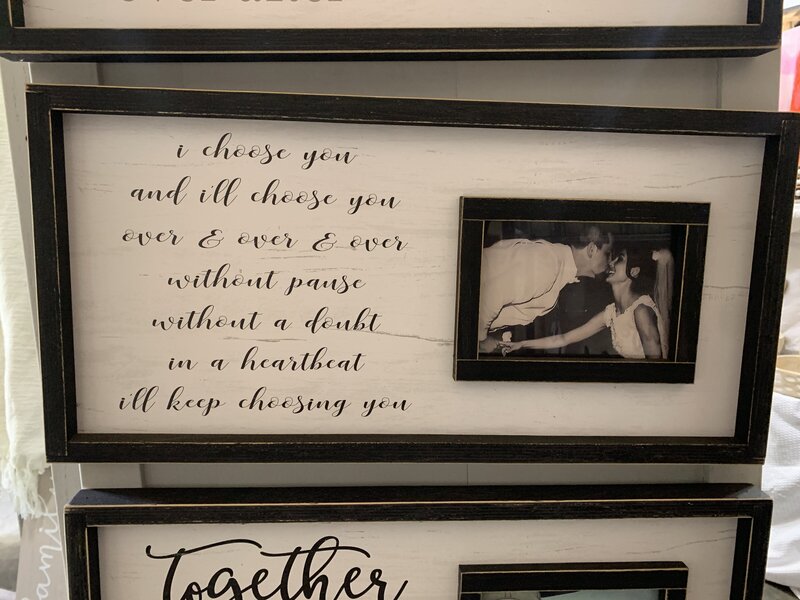 over after
i choose you
and i'll choose you
over & over & over
without pause
without a doubt
in a heartbeat
i'll keep choosing you
together